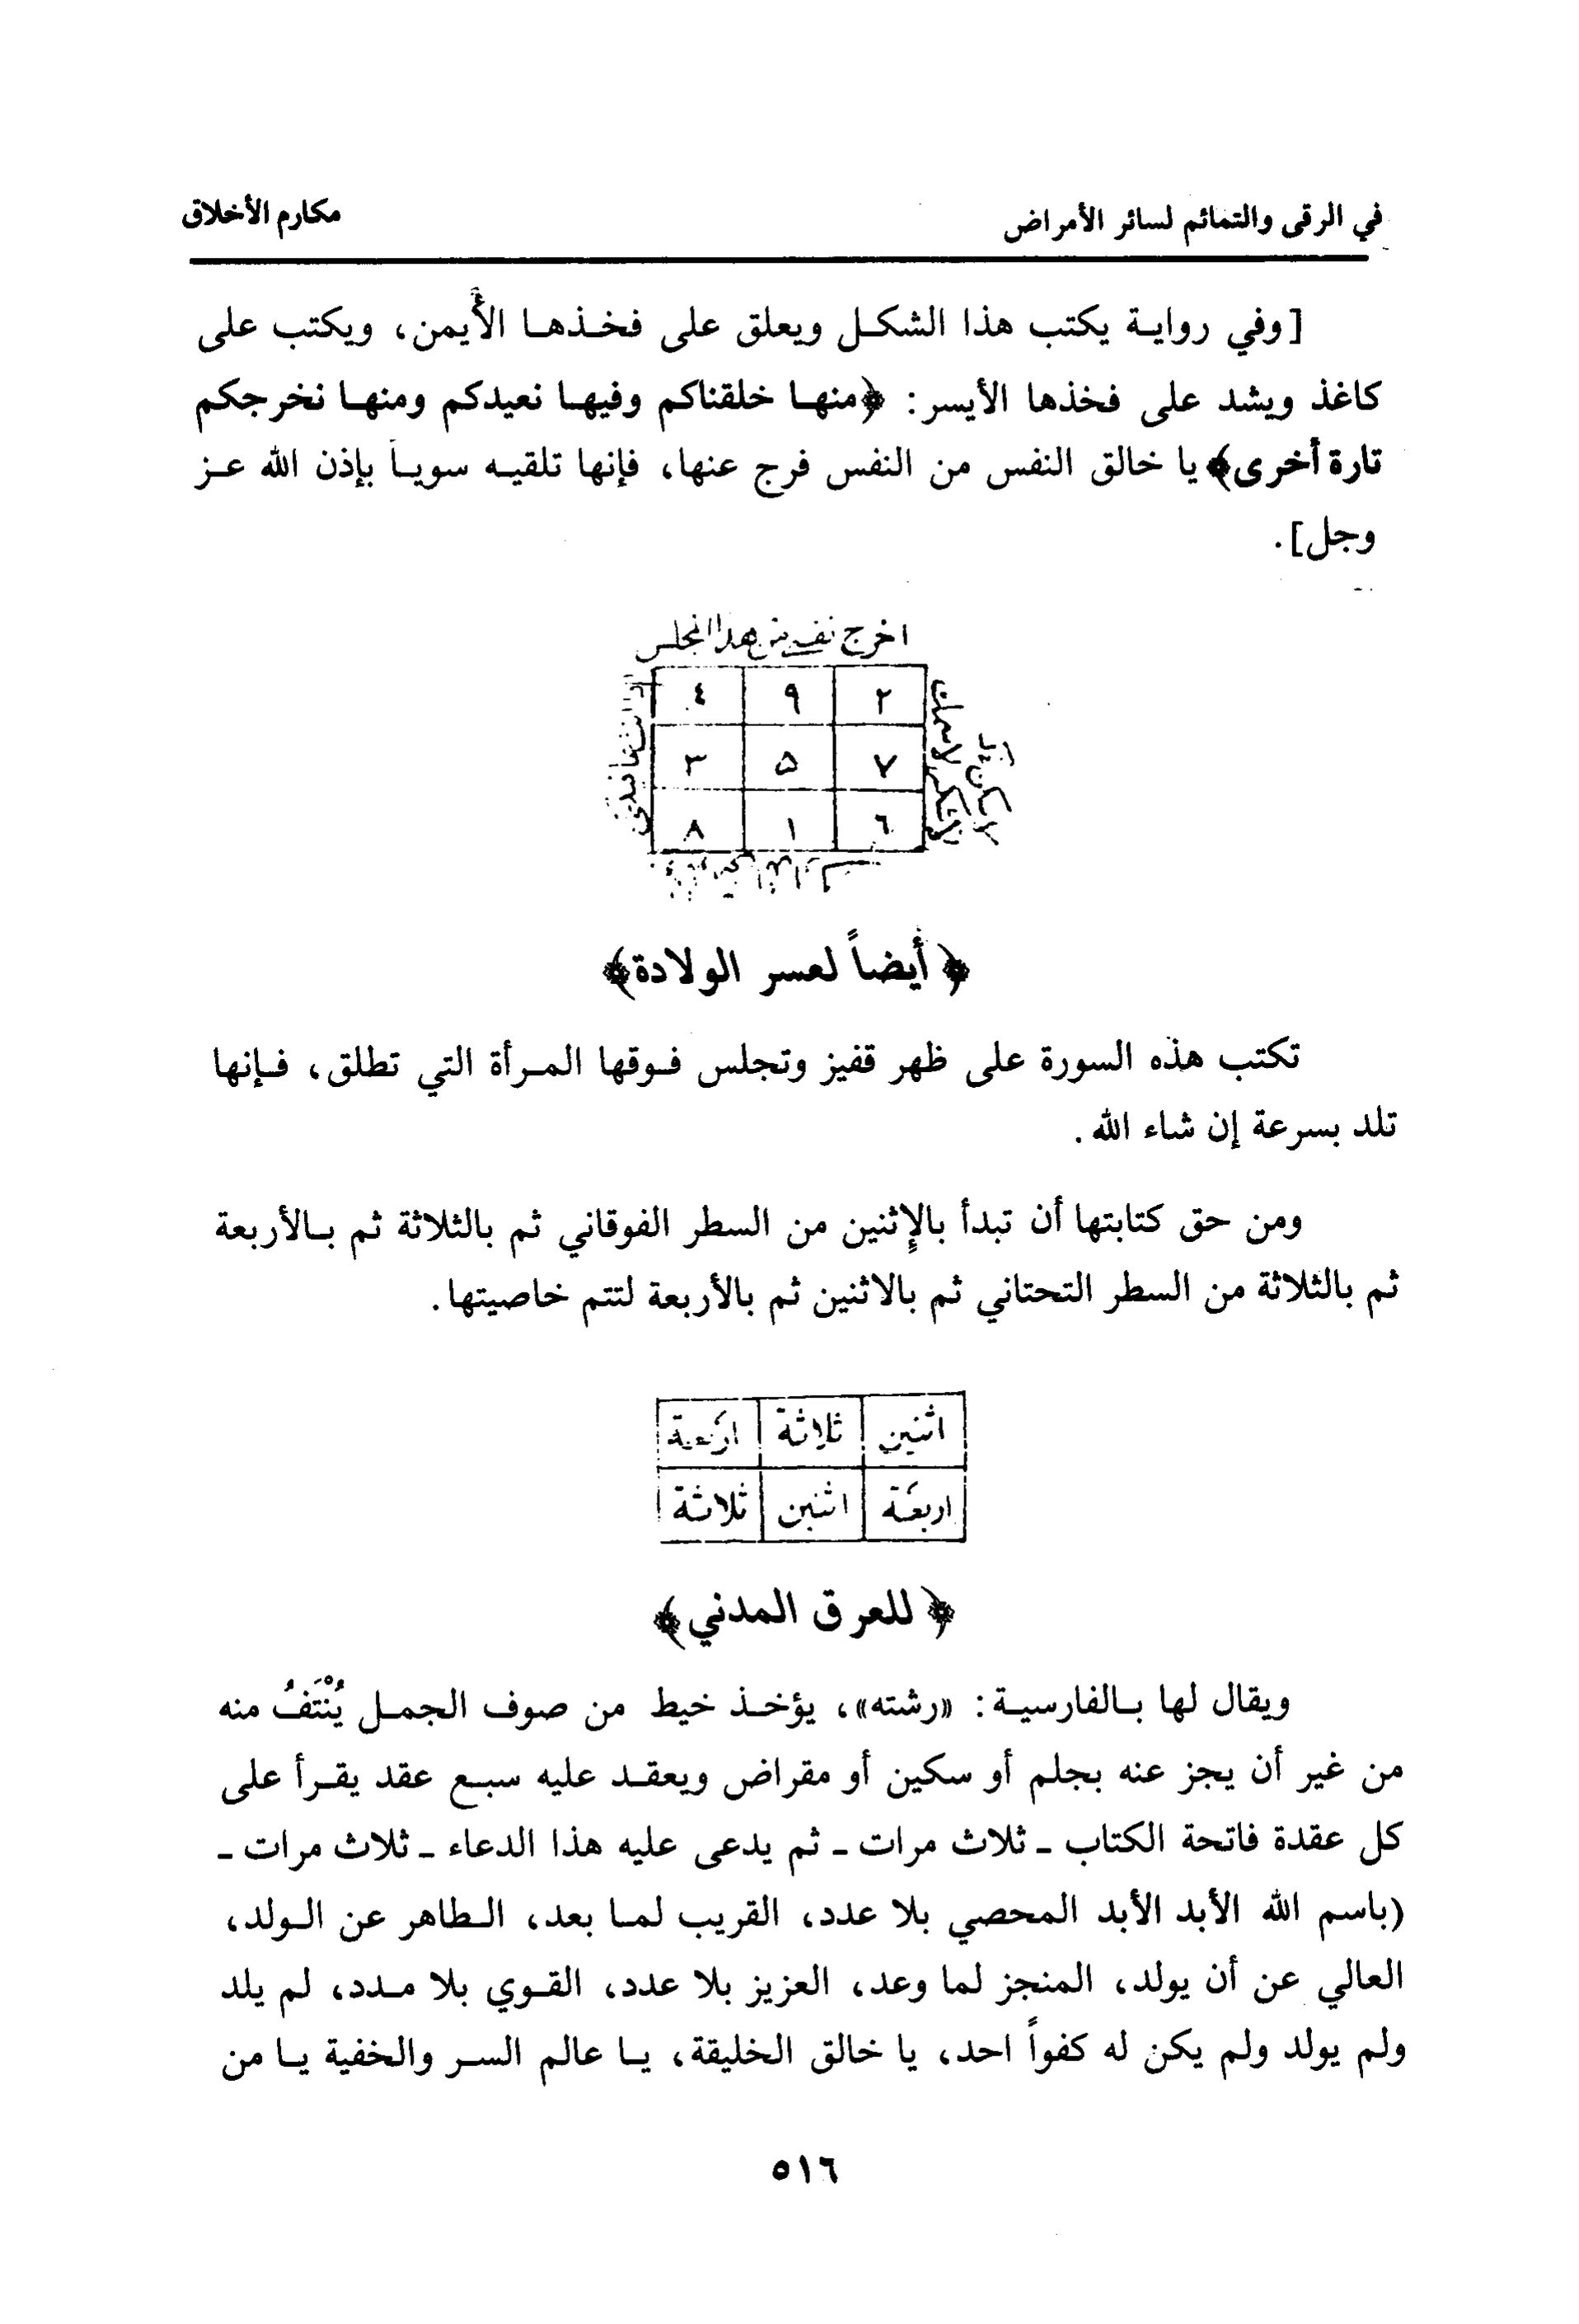 في الرقى والتمائم لسائر الأمراض مكارم الأخلاق
[وفي رواية يكتب هذا الشكل ويعلق على فخذها الأيمن، ويكتب على
كاغذ ويشد على فخذها الأيسر: ﴿منها خلقناكم وفيها نعيدكم ومنها نخرجكم
تارة أخرى﴾ يا خالق النفس من النفس فرج عنها، فإنها تلقيه سوياً بإذن الله عز
وجل].
اخرج نفسه من هذا المجلس
٢ ٩ ٤
٧ ٥ ٣
٦ ١ ٨
﴿أيضاً لعسر الولادة﴾
تكتب هذه السورة على ظهر قفيز وتجلس فوقها المرأة التي تطلق، فإنها
تلد بسرعة إن شاء الله.
ومن حق كتابتها أن تبدأ بالإثنين من السطر الفوقاني ثم بالثلاثة ثم بالأربعة
ثم بالثلاثة من السطر التحتاني ثم بالاثنين ثم بالأربعة لتتم خاصيتها.
اثنين ثلاثة اربعة
اربعة اثنين ثلاثة
﴿للعرق المدني﴾
ويقال لها بالفارسية: «رشته»، يؤخذ خيط من صوف الجمل يُنْتَفُ منه
من غير أن يجز عنه بجلم أو سكين أو مقراض ويعقد عليه سبع عقد يقرأ على
كل عقدة فاتحة الكتاب ـ ثلاث مرات ـ ثم يدعى عليه هذا الدعاء ـ ثلاث مرات ـ
(باسم الله الأبد الأبد المحصي بلا عدد، القريب لما بعد، الطاهر عن الولد،
العالي عن أن يولد، المنجز لما وعد، العزيز بلا عدد، القوي بلا مدد، لم يلد
ولم يولد ولم يكن له كفواً احد، يا خالق الخليقة، يا عالم السر والخفية يا من
٥١٦